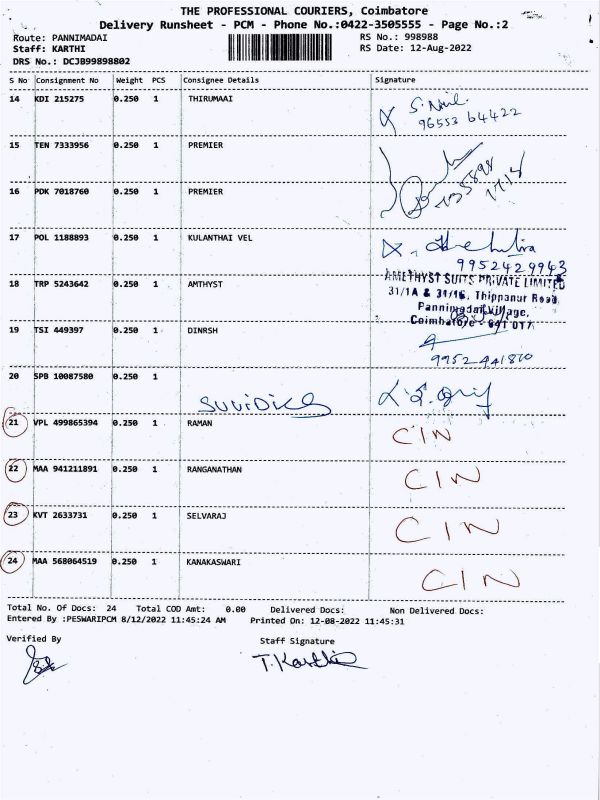 THE PROFESSIONAL COURIERS, Coimbatore
Delivery Runsheet - PCM - Phone No.:0422-3505555 - Page No.:2
Route: PANNIMADAI RS No.: 998988
Staff: KARTHI RS Date: 12-Aug-2022
DRS No.: DCJB99898802
S No Consignment No Weight PCS Consignee Details Signature
14 KDI 215275 0.250 1 THIRUMAAI
96553 64422
15 TEN 7333956 0.250 1 PREMIER
16 PDK 7018760 0.250 1 PREMIER
17 POL 1188893 0.250 1 KULANTHAI VEL
9952429943
18 TRP 5243642 0.250 1 AMTHYST AMETHYST SUITS PRIVATE LIMITED
31/1A & 31/1G, Thippanur Road,
Pannimadai Village,
Coimbatore - 641 017
19 TSI 449397 0.250 1 DINRSH
9952441860
20 SPB 10087580 0.250 1
21 VPL 499865394 0.250 1 RAMAN CIN
22 MAA 941211891 0.250 1 RANGANATHAN CIN
23 KVT 2633731 0.250 1 SELVARAJ CIN
24 MAA 568064519 0.250 1 KANAKASWARI CIN
Total No. Of Docs: 24 Total COD Amt: 0.00 Delivered Docs: Non Delivered Docs:
Entered By :PESWARIPCM 8/12/2022 11:45:24 AM Printed On: 12-08-2022 11:45:31
Verified By Staff Signature
T. Karthi